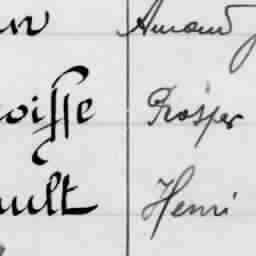 Amand
oiffe Prosper
ult Henri